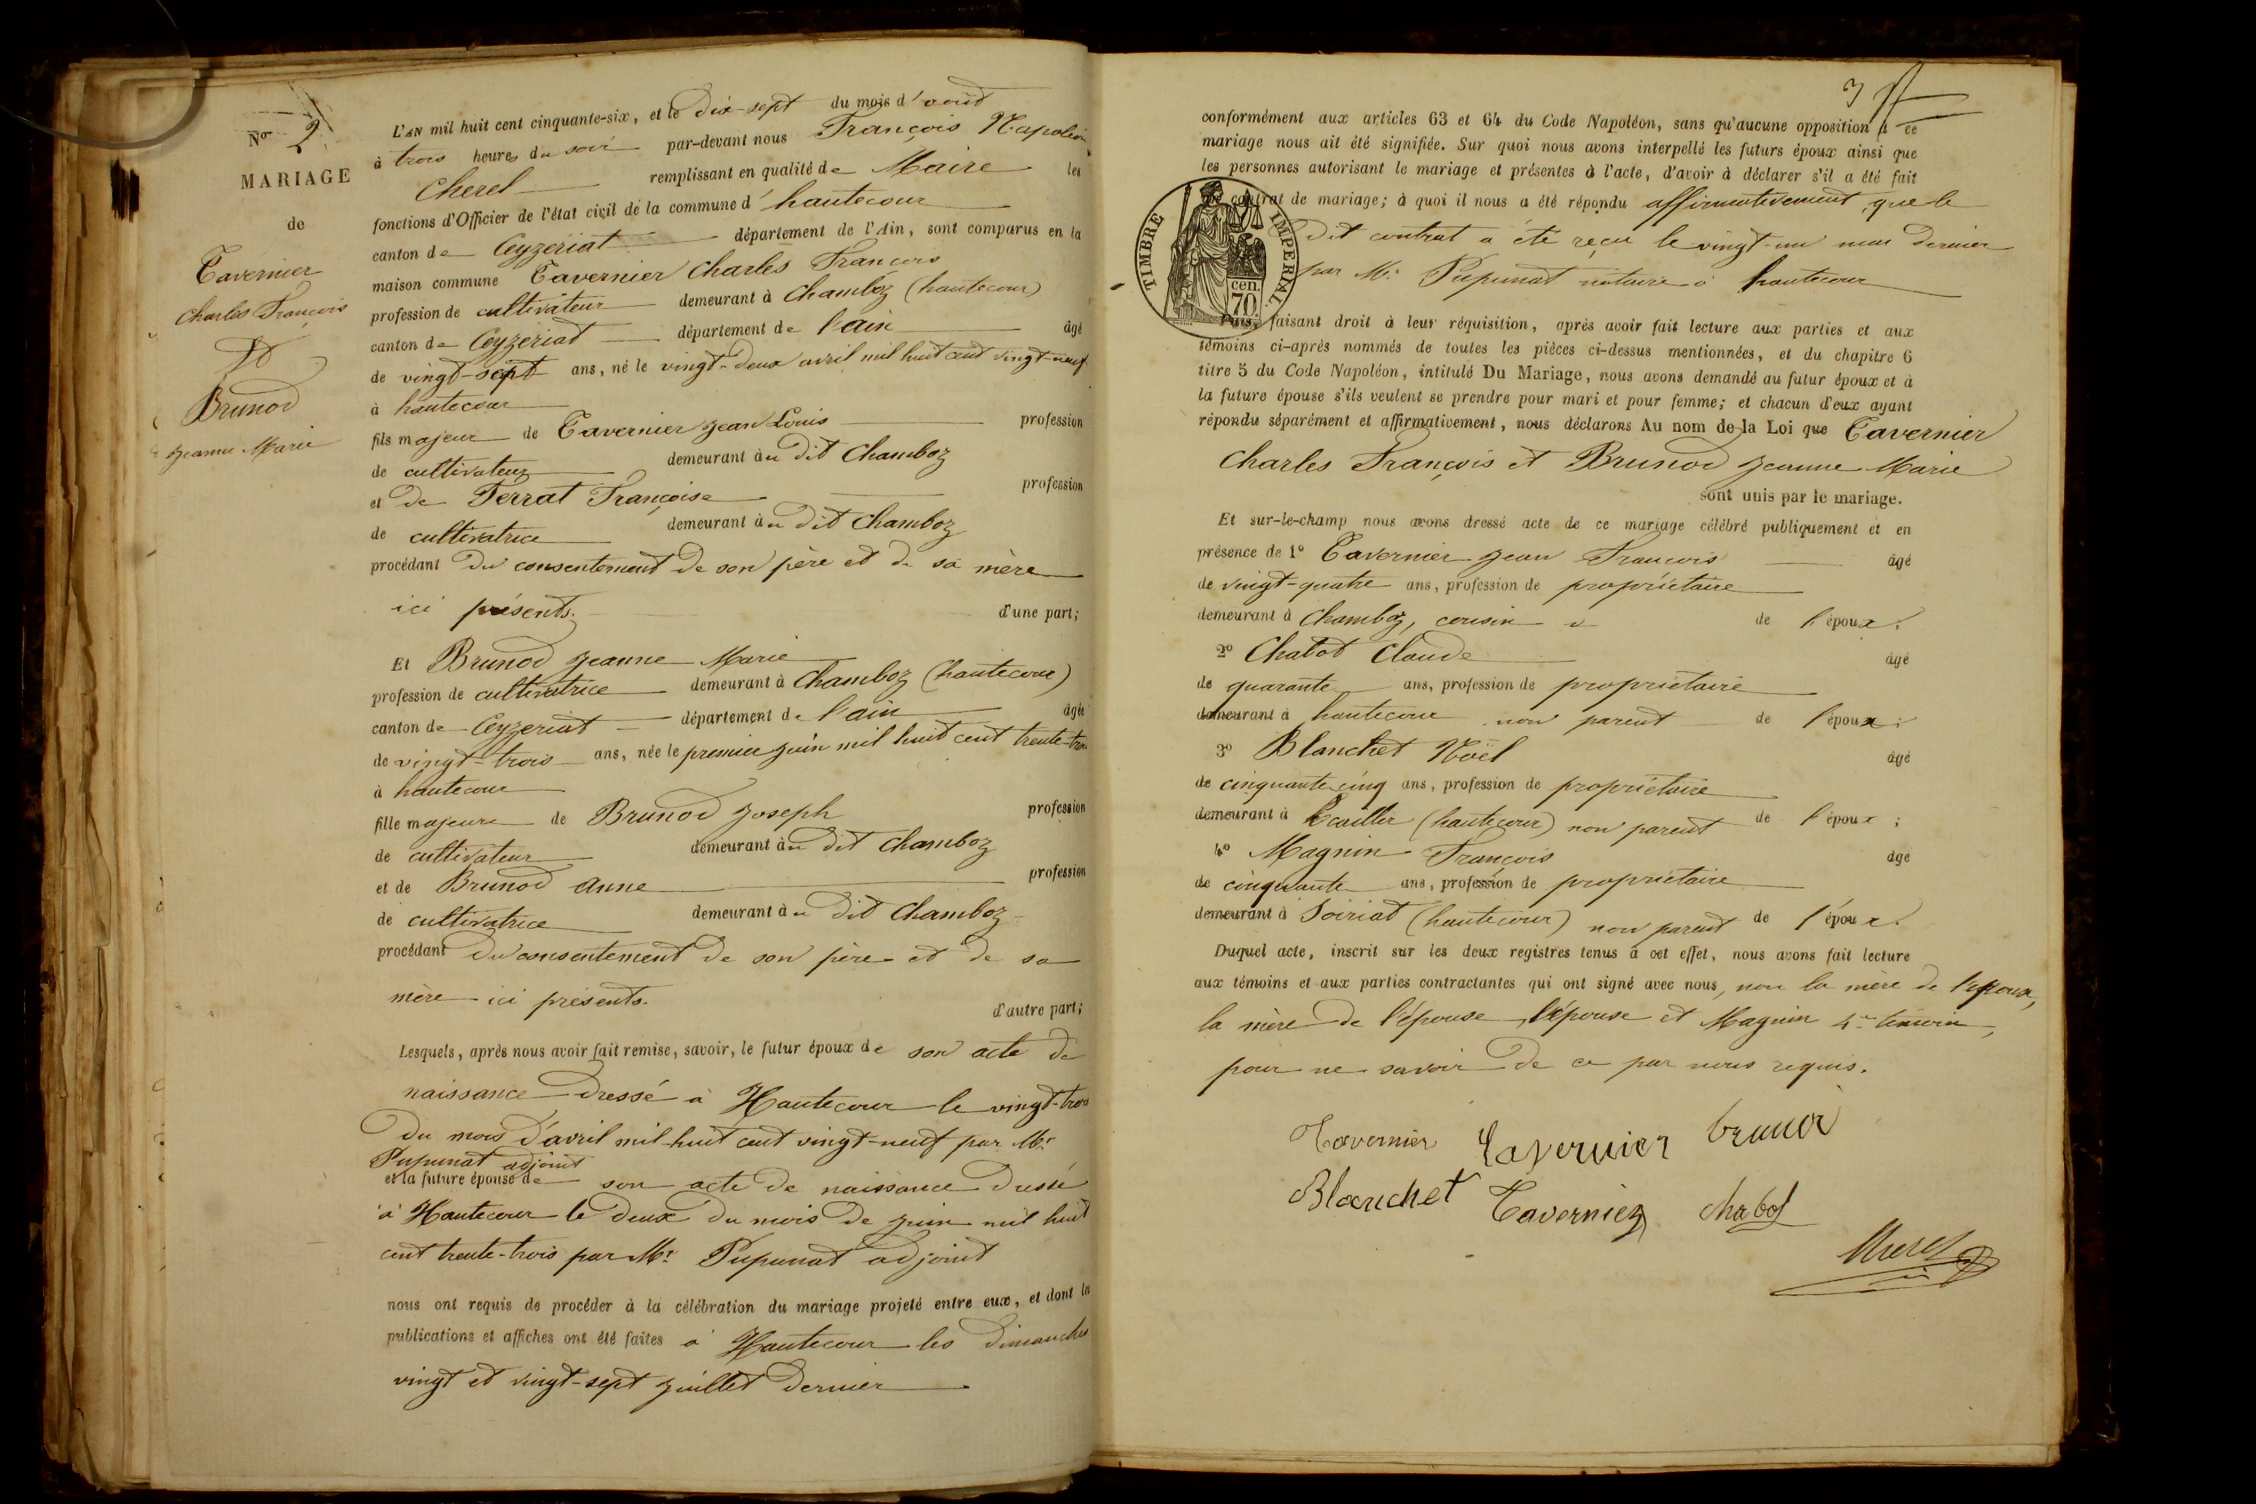 No 2.
MARIAGE
de
Tavernier
Charles François
Et
Brunod
Jeanne Marie
L'AN mil huit cent cinquante-six, et le dix-sept du mois d'août
à trois heures du soir par-devant nous François Napoléon
Cherel remplissant en qualité de Maire les
fonctions d'Officier de l'état civil de la commune d'hautecour
canton de Ceyzeriat département de l'Ain, sont comparus en la
maison commune Tavernier Charles François
profession de cultivateur demeurant à Chamboz (hautecour)
canton de Ceyzériat département de l'ain âgé
de vingt-sept ans, né le vingt-deux avril mil huit cent vingt-neuf
à hautecour
fils majeur de Tavernier Jean Louis profession
de cultivateur demeurant au dit Chamboz
et de Ferrat Françoise profession
de cultivatrice demeurant au dit Chamboz
procédant du consentement de son père et de sa mère
ici présents. d'une part;
Et Brunod Jeanne Marie
profession de cultivatrice demeurant à Chamboz (hautecour)
canton de Ceyzeriat département de l'ain âgée
de vingt-trois ans, née le premier juin mil huit cent trente-trois
à hautecour
fille majeure de Brunod Joseph profession
de cultivateur demeurant au dit Chamboz
et de Brunod anne profession
de cultivatrice demeurant au dit Chamboz
procédant du consentement de son père et de sa
mère ici présents. d'autre part;
Lesquels, après nous avoir fait remise, savoir, le futur époux de son acte de
naissance dressé à Hautecour le vingt-trois
du mois d'avril mil huit cent vingt-neuf par Mr
Pupunat adjoint
et la future épouse de son acte de naissance dressé
à Hautecour le deux du mois de juin mil huit
cent trente-trois par Mr. Pupunat adjoint
nous ont requis de procéder à la célébration du mariage projeté entre eux, et dont les
publications et affiches ont été faites à Hautecour les dimanches
vingt et vingt-sept juillet dernier
3
conformément aux articles 63 et 64 du Code Napoléon, sans qu'aucune opposition à ce
mariage nous ait été signifiée. Sur quoi nous avons interpellé les futurs époux ainsi que
les personnes autorisant le mariage et présentes à l'acte, d'avoir à déclarer s'il a été fait
contrat de mariage; à quoi il nous a été répondu affirmativement, que le
dit contrat a été reçu le vingt-un mai dernier
par Me. Pupunat notaire à hautecour
TIMBRE IMPERIAL
cen.
70.
Puis, faisant droit à leur réquisition, après avoir fait lecture aux parties et aux
témoins ci-après nommés de toutes les pièces ci-dessus mentionnées, et du chapitre 6
titre 5 du Code Napoléon, intitulé Du Mariage, nous avons demandé au futur époux et à
la future épouse s'ils veulent se prendre pour mari et pour femme; et chacun d'eux ayant
répondu séparément et affirmativement, nous déclarons Au nom de la Loi que Tavernier
Charles François et Brunod Jeanne Marie
sont unis par le mariage.
Et sur-le-champ nous avons dressé acte de ce mariage célébré publiquement et en
présence de 1° Tavernier Jean François âgé
de vingt-quatre ans, profession de propriétaire
demeurant à Chamboz, cousin de l'époux.
2° Chabot Claude âgé
de quarante ans, profession de propriétaire
demeurant à hautecour non parent de l'époux;
3° Blanchet Noël âgé
de cinquante cinq ans, profession de propriétaire
demeurant à (hautecour) non parent de l'époux;
4° Magnin François âgé
de cinquante ans, profession de propriétaire
demeurant à Soiriat (hautecour) non parent de l'époux.
Duquel acte, inscrit sur les deux registres tenus à cet effet, nous avons fait lecture
aux témoins et aux parties contractantes qui ont signé avec nous, non la mère de l'époux,
la mère de l'épouse, l'épouse et Magnin 4me témoin,
pour ne savoir de ce par nous requis.
Tavernier Tavernier brunod
Blanchet Tavernier chabot
Cherel